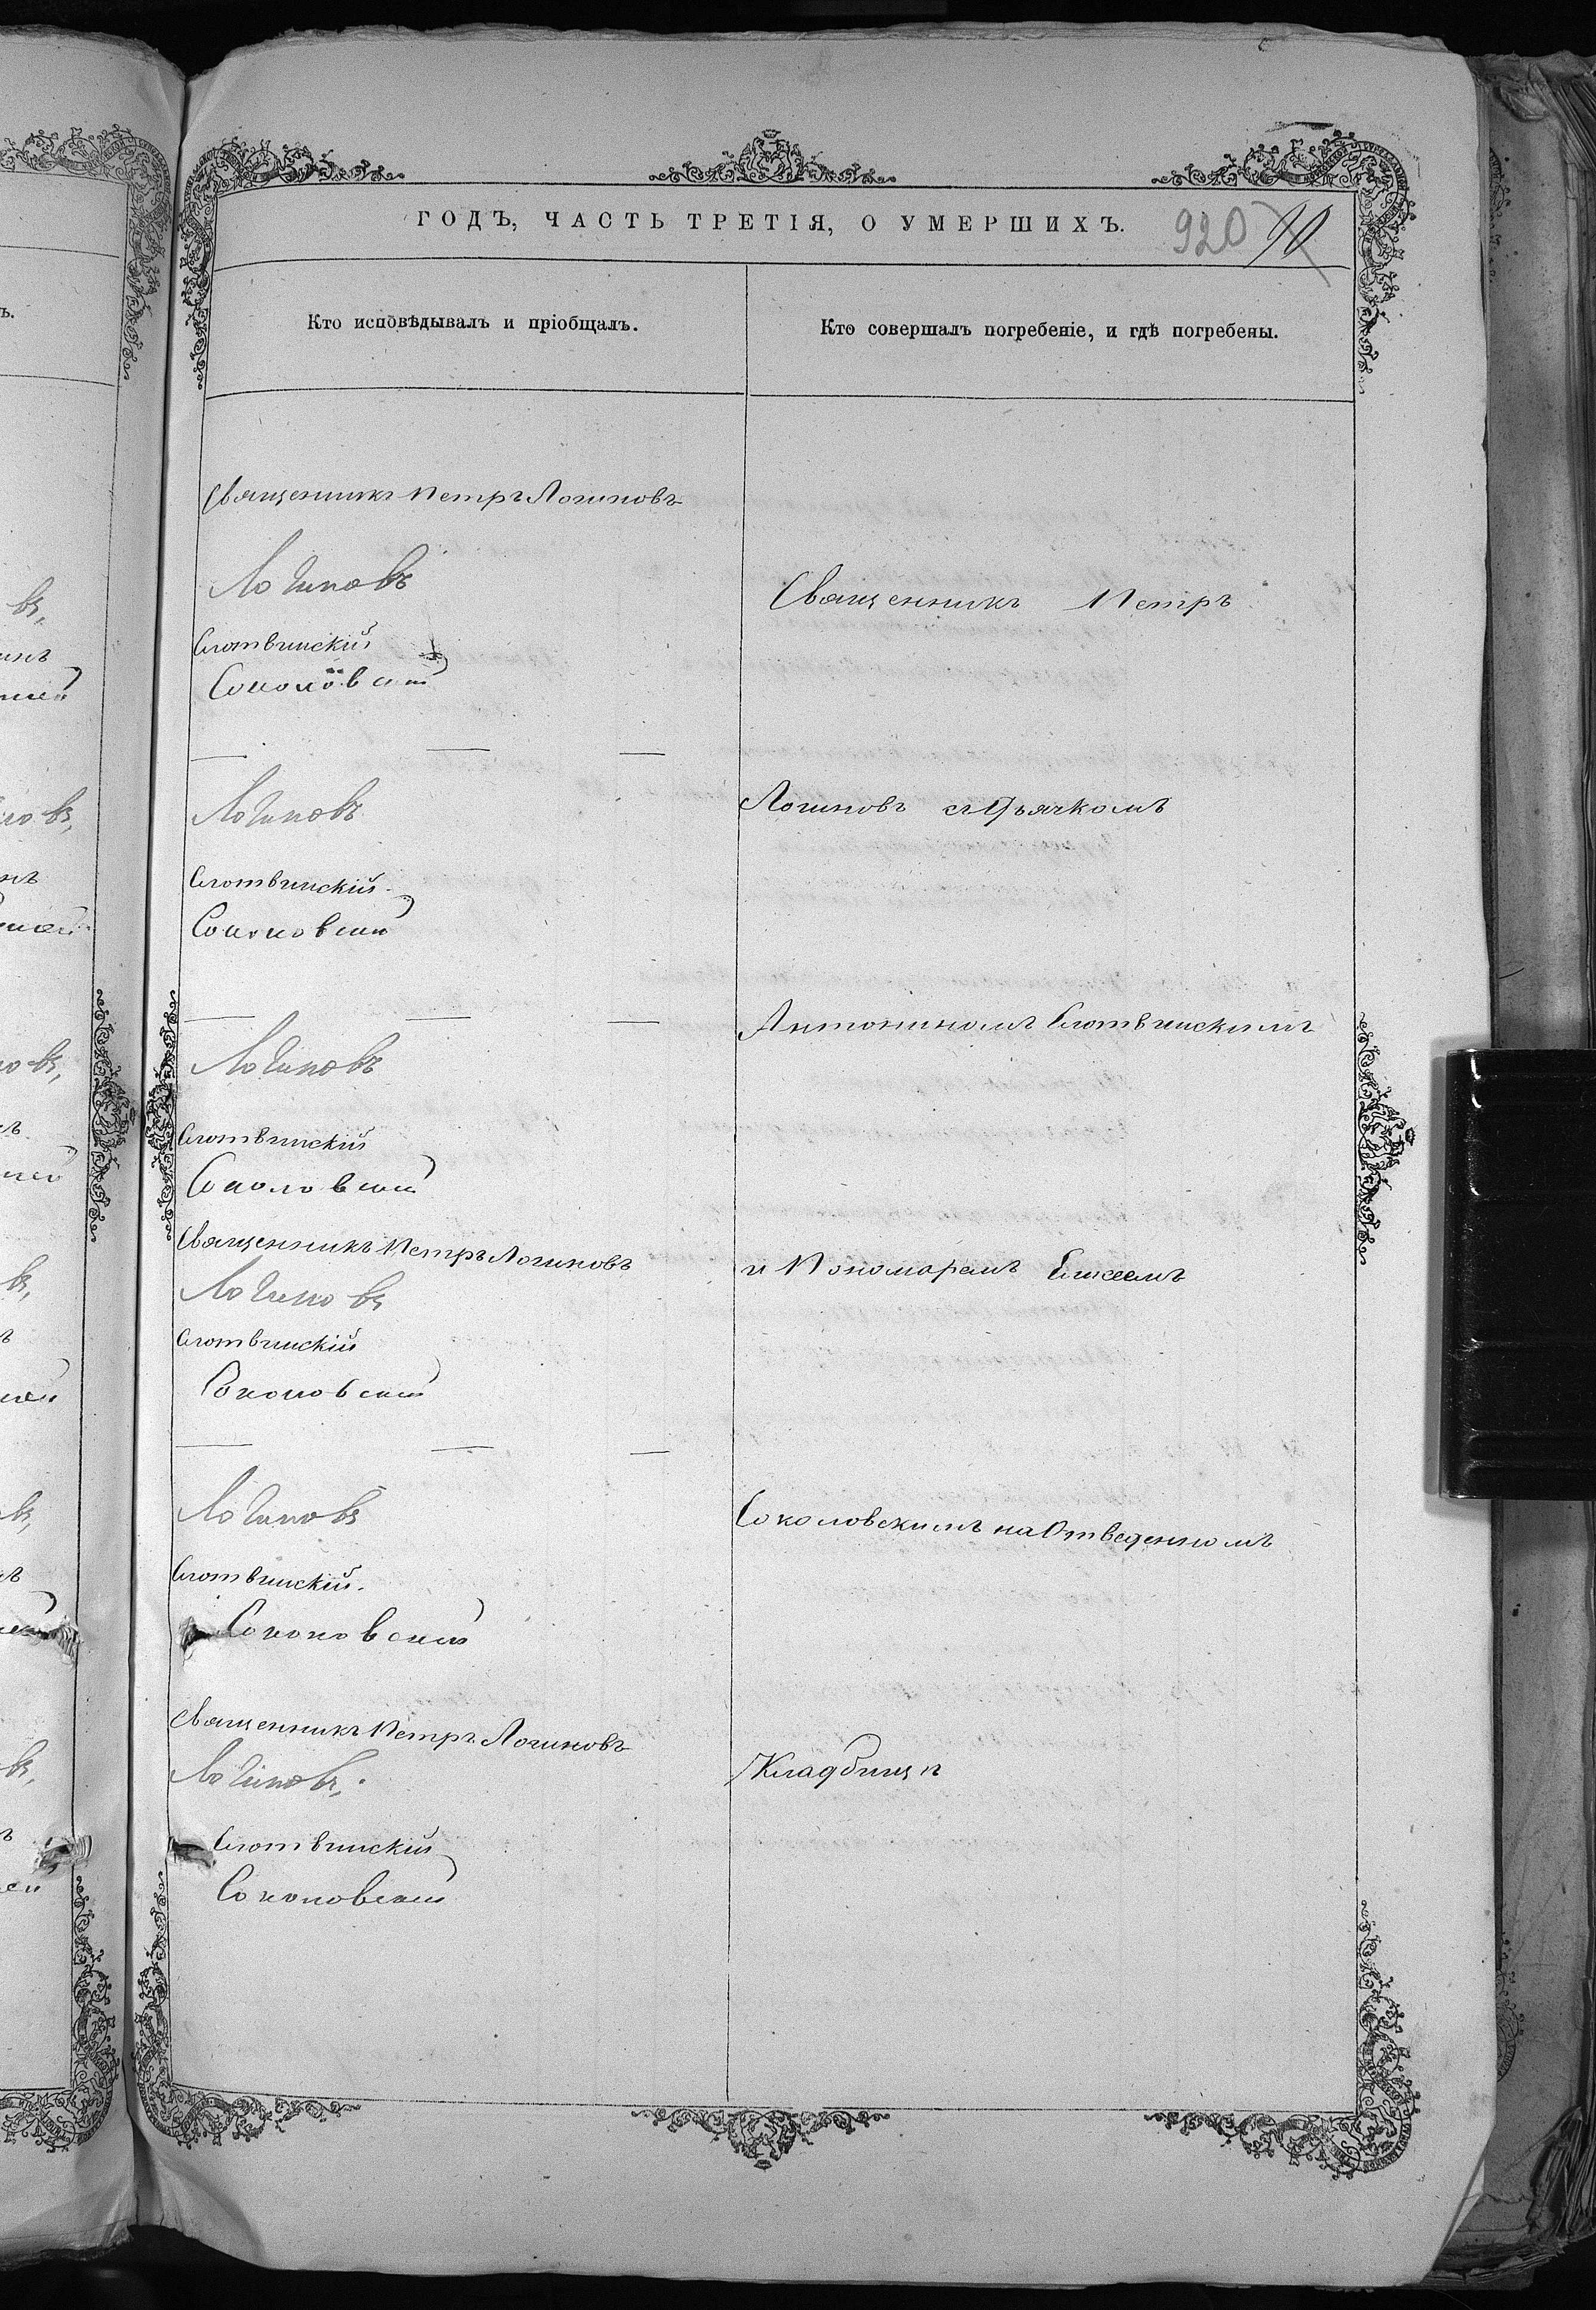 ГОДЪ, ЧАСТЬ ТРЕТІЯ, О УМЕРШИХЪ.
920
Кто исповѣдывалъ и пріобщалъ.
Священникъ Петръ Логиновъ
Логиновъ
Слотвинскій
Соколовскій
Логиновъ
Слотвинскій
Соколовскій
Логиновъ
Слотвинскій
Соколовскій
Священникъ Петръ Логиновъ
Логиновъ
Слотвинскій
Соколовскій
Логиновъ
Слотвинскій.
Соколовскій
Священникъ Петръ Логиновъ
Логиновъ.
Слотвинскій
Соколовскій
Кто совершалъ погребеніе, и гдѣ погребены.
Священникъ Петръ
Логиновъ съ Дьячкомъ
Антониномъ Слотвинскимъ
и Пономаремъ
Соколовскимъ на Отведенномъ
Кладбищѣ